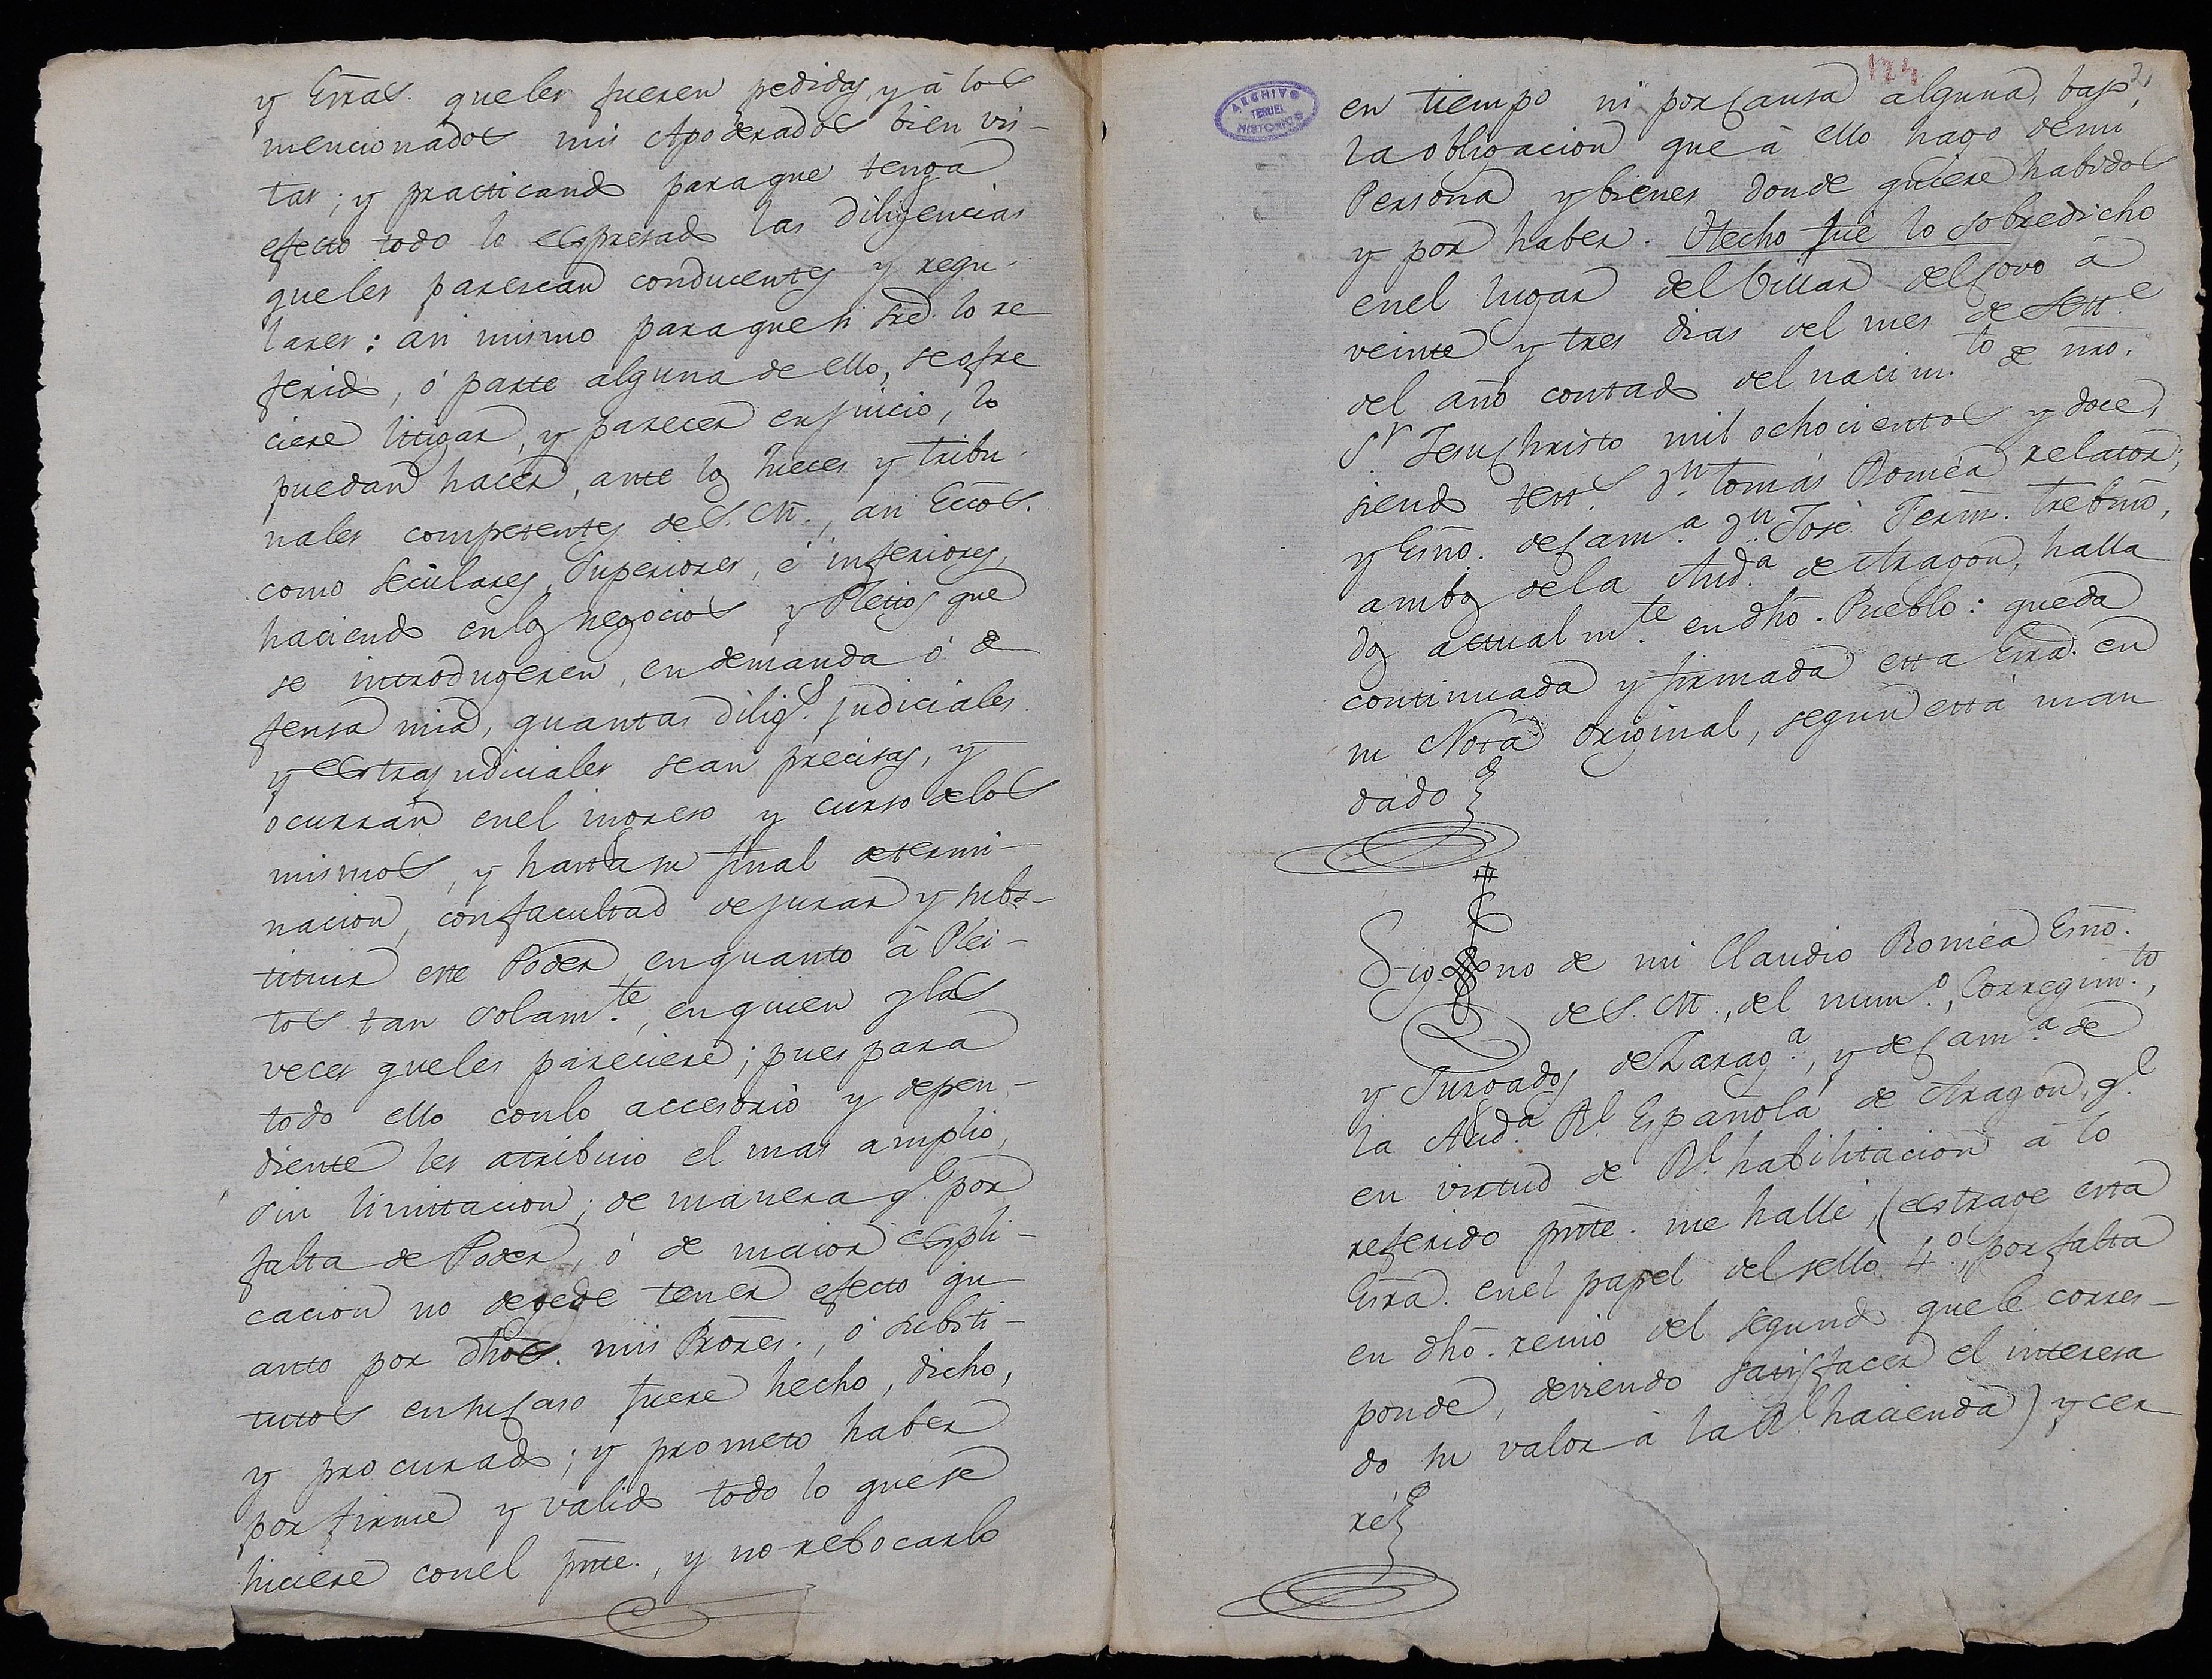 y Esras. queles fueren pedidas, y à los
mencionados mis Apoderados bien vis-
tas; y practicando paraque tenga
efecto todo lo expresado las diligencias
queles parescan conducentes y regu-
lares: asi mismo paraque si sre. lo re
ferido, ó parte alguna de ello, seofre
ciere litigar, y parecer enjuicio, lo
puedan hacer, ante los Jueces y tribu-
nales competentes de S. M., asi Eccos.
como Seculares, Superiores, é inferiores,
haciendo enlos negocios y Pleitos que
se introdugeren, en demanda ó de
fensa mia, quantas diligs. judiciales
y extrajudiciales sean precisas, y
ocurran enel ingreso y curso delos
mismos, y hasta su final determi-
nacion, confacultad dejurar y subs-
tituir este Poder, enquanto à Plei-
tos tan solamte., enquien y las
veces queles pareciere; pues para
todo ello conlo accesorio y depen-
diente les atribuio el mas amplio,
sin limitacion; de manera qe. por
falta de Poder, ó de maior expli-
cacion no dege de tener efecto qu
anto por dhos. mis Prores., ó substi-
tutos ensucaso fuere hecho, dicho,
y procurado; y prometo haber
por firme y valido todo lo quese
hiciere conel pnte., y no rebocarlo
124
2
ARCHIVO
TERUEL
HISTORICO
en tiempo ni porcausa alguna, bajo,
la obligacion que à ello hago demi
Persona y bienes donde quiere habidos
y por haber. Hecho fue lo sobredicho
enel lugar del Villar delcovo à
veinte y tres dias del mes de Sette.
del año contado del nacimto. de nro.
Sr. Jesuchristo mil ochocientos y doce,
siendo testts. Dn. tomás Romea relator;
y Esno. decama. Dn. José Ferm. trebiño,
ambos dela Auda. de Aragon, halla
dos actualmte. en dho. Pueblo: queda
continuada y firmada esta Esra. en
su Nota original, segun está man
dado
Sig no de mi Claudio Romea Esno.
de S. M., del numo., Corregimto.,
y Jurgados de Zaraga., y decama. de
la Auda. Rl. Española de Aragon, ql.
en virtud de Rl. habilitacion à lo
referido pnte. me hallé, (extrage esta
Esra. enel papel del sello 4º., por falta
en dho. reino del segundo quele corres-
ponde, deviendo satisfacer el interesa
do su valor à la Rl. hacienda) y cer
ré